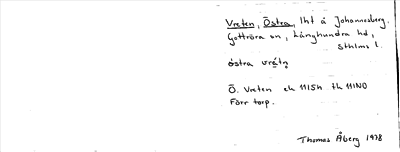 Vreten, Östra, lht å Johannesberg.
Gottröra sn, Långhundra hd,
Sthlms l.
östra vrȩ́tņ
Ö. Vreten ek 11I5h th 11IN0
Förr torp.
Thomas Åberg 1978